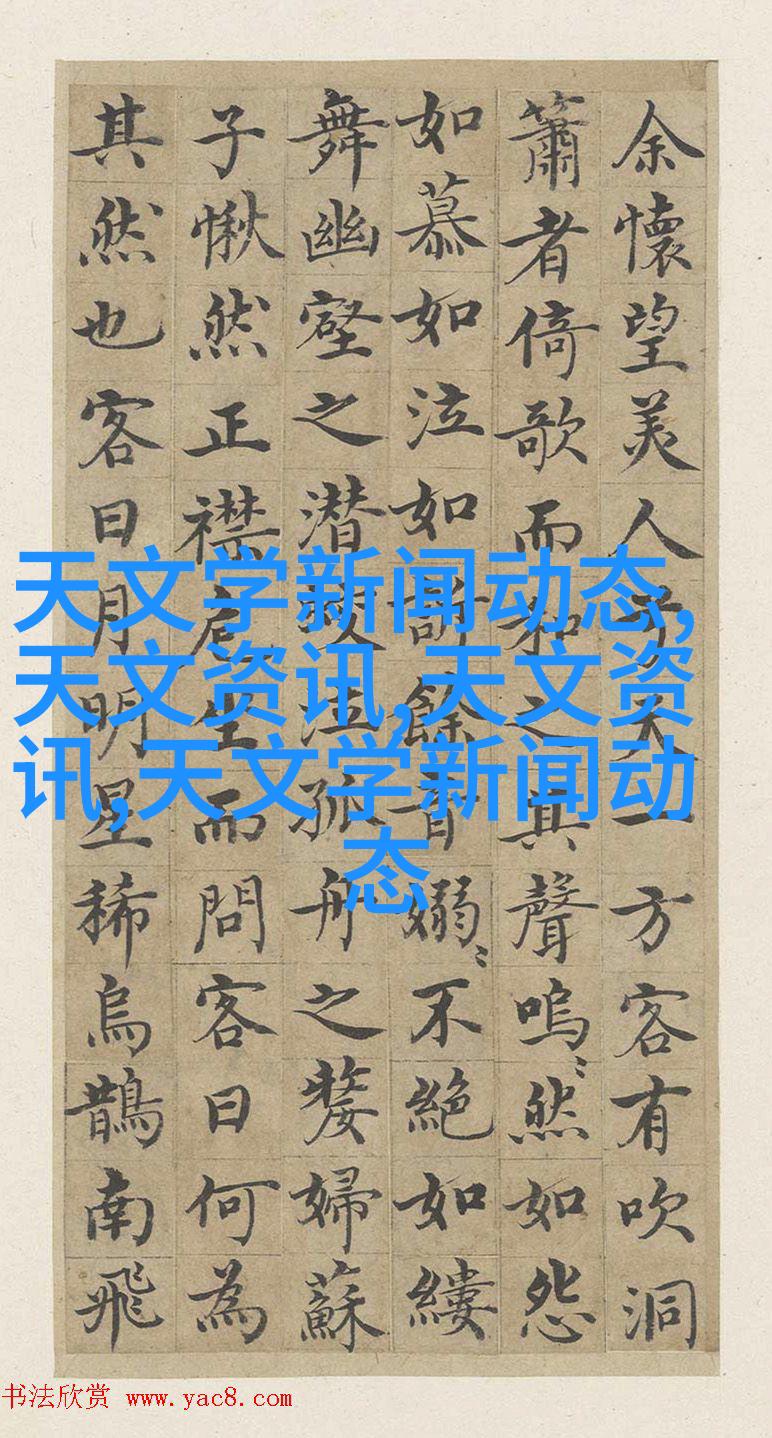 余懷望美人兮天一方客有吹洞
簫者倚歌而和之其聲嗚〻然如怨
如慕如泣如訴餘音嫋〻不絕如縷
舞幽壑之潜蛟泣孤舟之嫠婦蘇
子愀然正襟危坐而問客曰何為
其然也客曰月明星稀烏鵲南飛
天文学新闻动态,
天文资讯,天文资
讯,天文学新闻动
态
书法欣赏 www.yac8.com